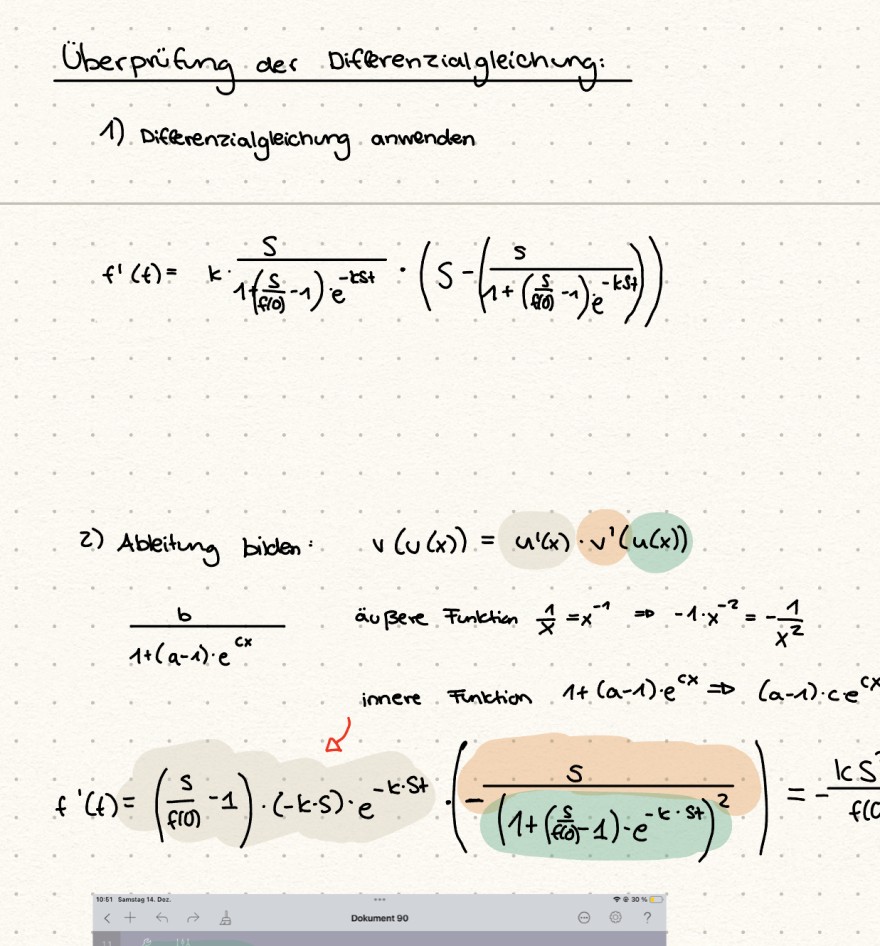 Überprüfung der Differenzialgleichung:
1) Differenzialgleichung anwenden
f'(t) = k · S / (1+(S/f(0) -1)·e^(-kSt)) · (S - (S / (1+(S/f(0) -1)·e^(-kSt))))
2) Ableitung bilden: v(u(x)) = u'(x) · v'(u(x))
b / (1+(a-1)·e^(cx)) äußere Funktion 1/x = x^(-1) ⇒ -1·x^(-2) = -1/x²
innere Funktion 1+(a-1)·e^(cx) ⇒ (a-1)·c·e^(cx)
f'(t) = (S/f(0) -1)·(-k·S)·e^(-k·St) · (- S / (1+(S/f(0) -1)·e^(-k·St))²) = - kS
10:51 Samstag 14. Dez. 30 %
Dokument 90
11